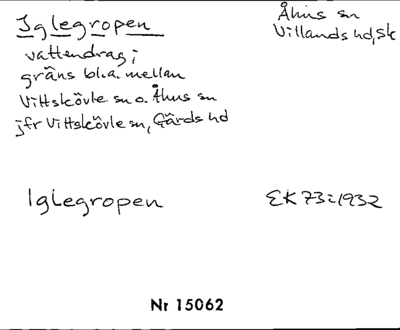 Iglegropen
Åhus sn
Villands hd, Sk
vattendrag;
gräns bl.a. mellan
Vittskövle sn o. Åhus sn
jfr Vittskövle sn, Gärds hd
Iglegropen
EK 73:1932
Nr 15062